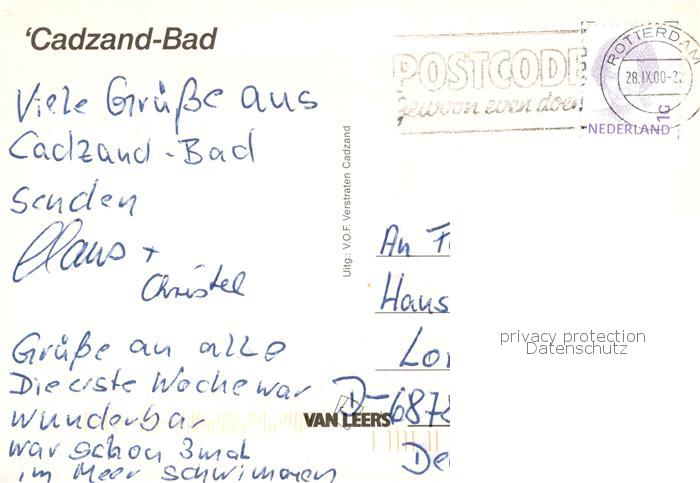 'Cadzand-Bad
Viele Grüße aus
Cadzand-Bad
senden
Klaus +
Christel
Grüße an alle
Die erste Woche war
wunderbar
war schon 3mal
im Meer schwimmen
Uitg.: V.O.F. Verstraten Cadzand
VAN LEER'S
POSTCODE
gewoon even doen
ROTTERDAM
28.IX.00-2
NEDERLAND
1c
An F
Hans
Lo
D-687
De
privacy protection
Datenschutz